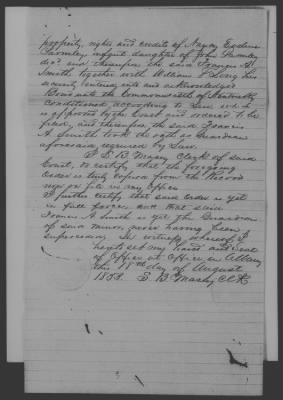 property rights and credits of Nancy Evaline
Parmley infant daughter of John Parmley
decd. and thereupon the said Francis A.
Smith together with William F. Long his
security entered into and acknowledged
Bond unto the Commonwealth of Kentucky
conditioned according to Law which
is approved by the Court and ordered to be
filed, and thereupon the said Francis
A. Smith took the oath as Guardian
aforesaid required by Law.
I S. B. Maxey Clerk of said
Court, do certify that the foregoing
order is truly copied from the Record
now on file in my Office
I further certify that said order is yet
in full force, and that said
Francis A. Smith is yet the Guardian
of said minor, never having been
superseded. In witness whereof I
hereto set my hand and seal
of Office at Office in Albany
this 18th day of August
S. B. Maxey Clk